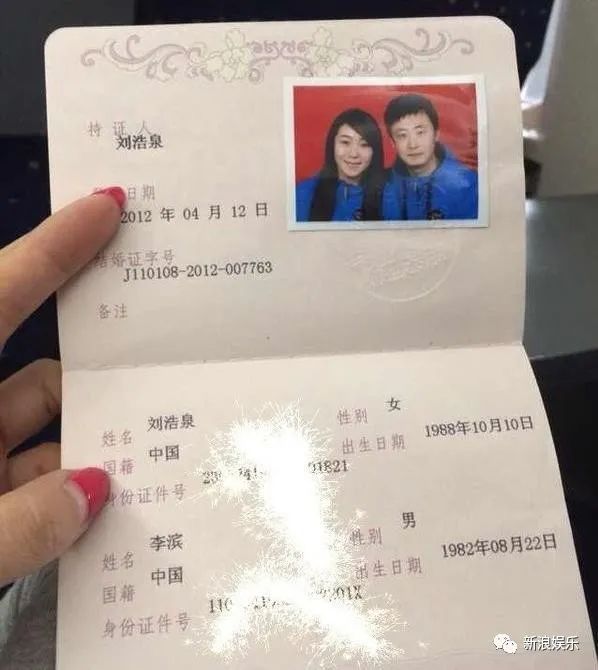 持证人
刘浩泉
日期
2012 年 04 月 12 日
结婚证字号
J110108-2012-007763
备注
姓名 刘浩泉 性别 女
国籍 中国 出生日期 1988年10月10日
身份证件号
姓名 李滨 性别 男
国籍 中国 出生日期 1982年08月22日
身份证件号
新浪娱乐